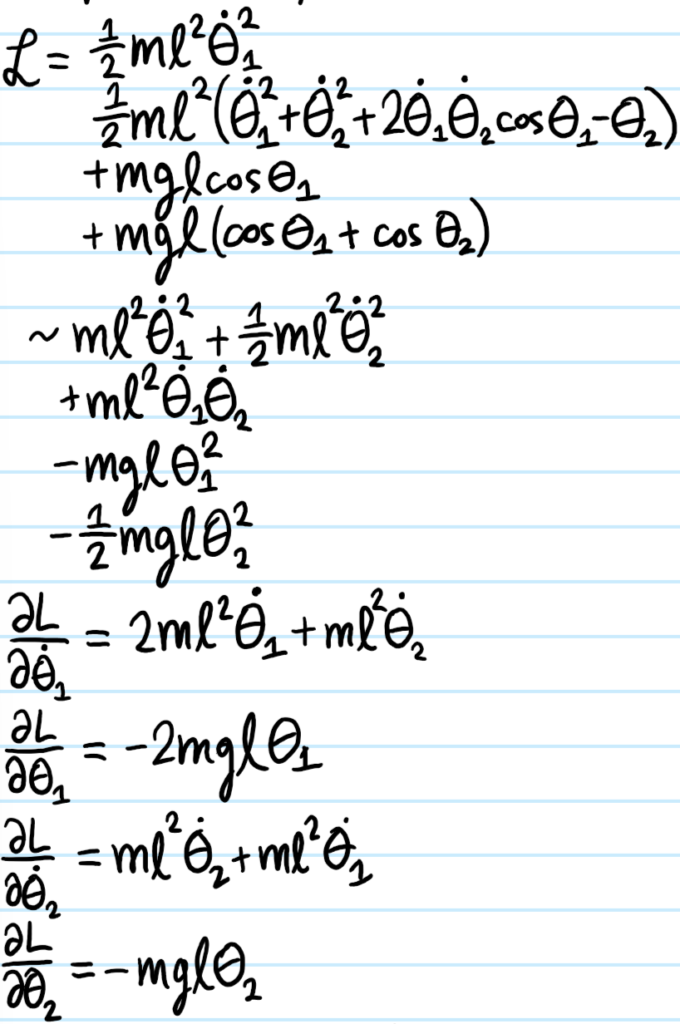 ℒ = ½ml²θ̇₁²
½ml²(θ̇₁²+θ̇₂²+2θ̇₁θ̇₂cosθ₁-θ₂)
+mglcosθ₁
+mgl(cosθ₁+cosθ₂)
~ml²θ̇₁²+½ml²θ̇₂²
+ml²θ̇₁θ̇₂
-mglθ₁²
-½mglθ₂²
∂L/∂θ̇₁ = 2ml²θ̇₁+ml²θ̇₂
∂L/∂θ₁ = -2mglθ₁
∂L/∂θ̇₂ = ml²θ̇₂+ml²θ̇₁
∂L/∂θ₂ = -mglθ₂